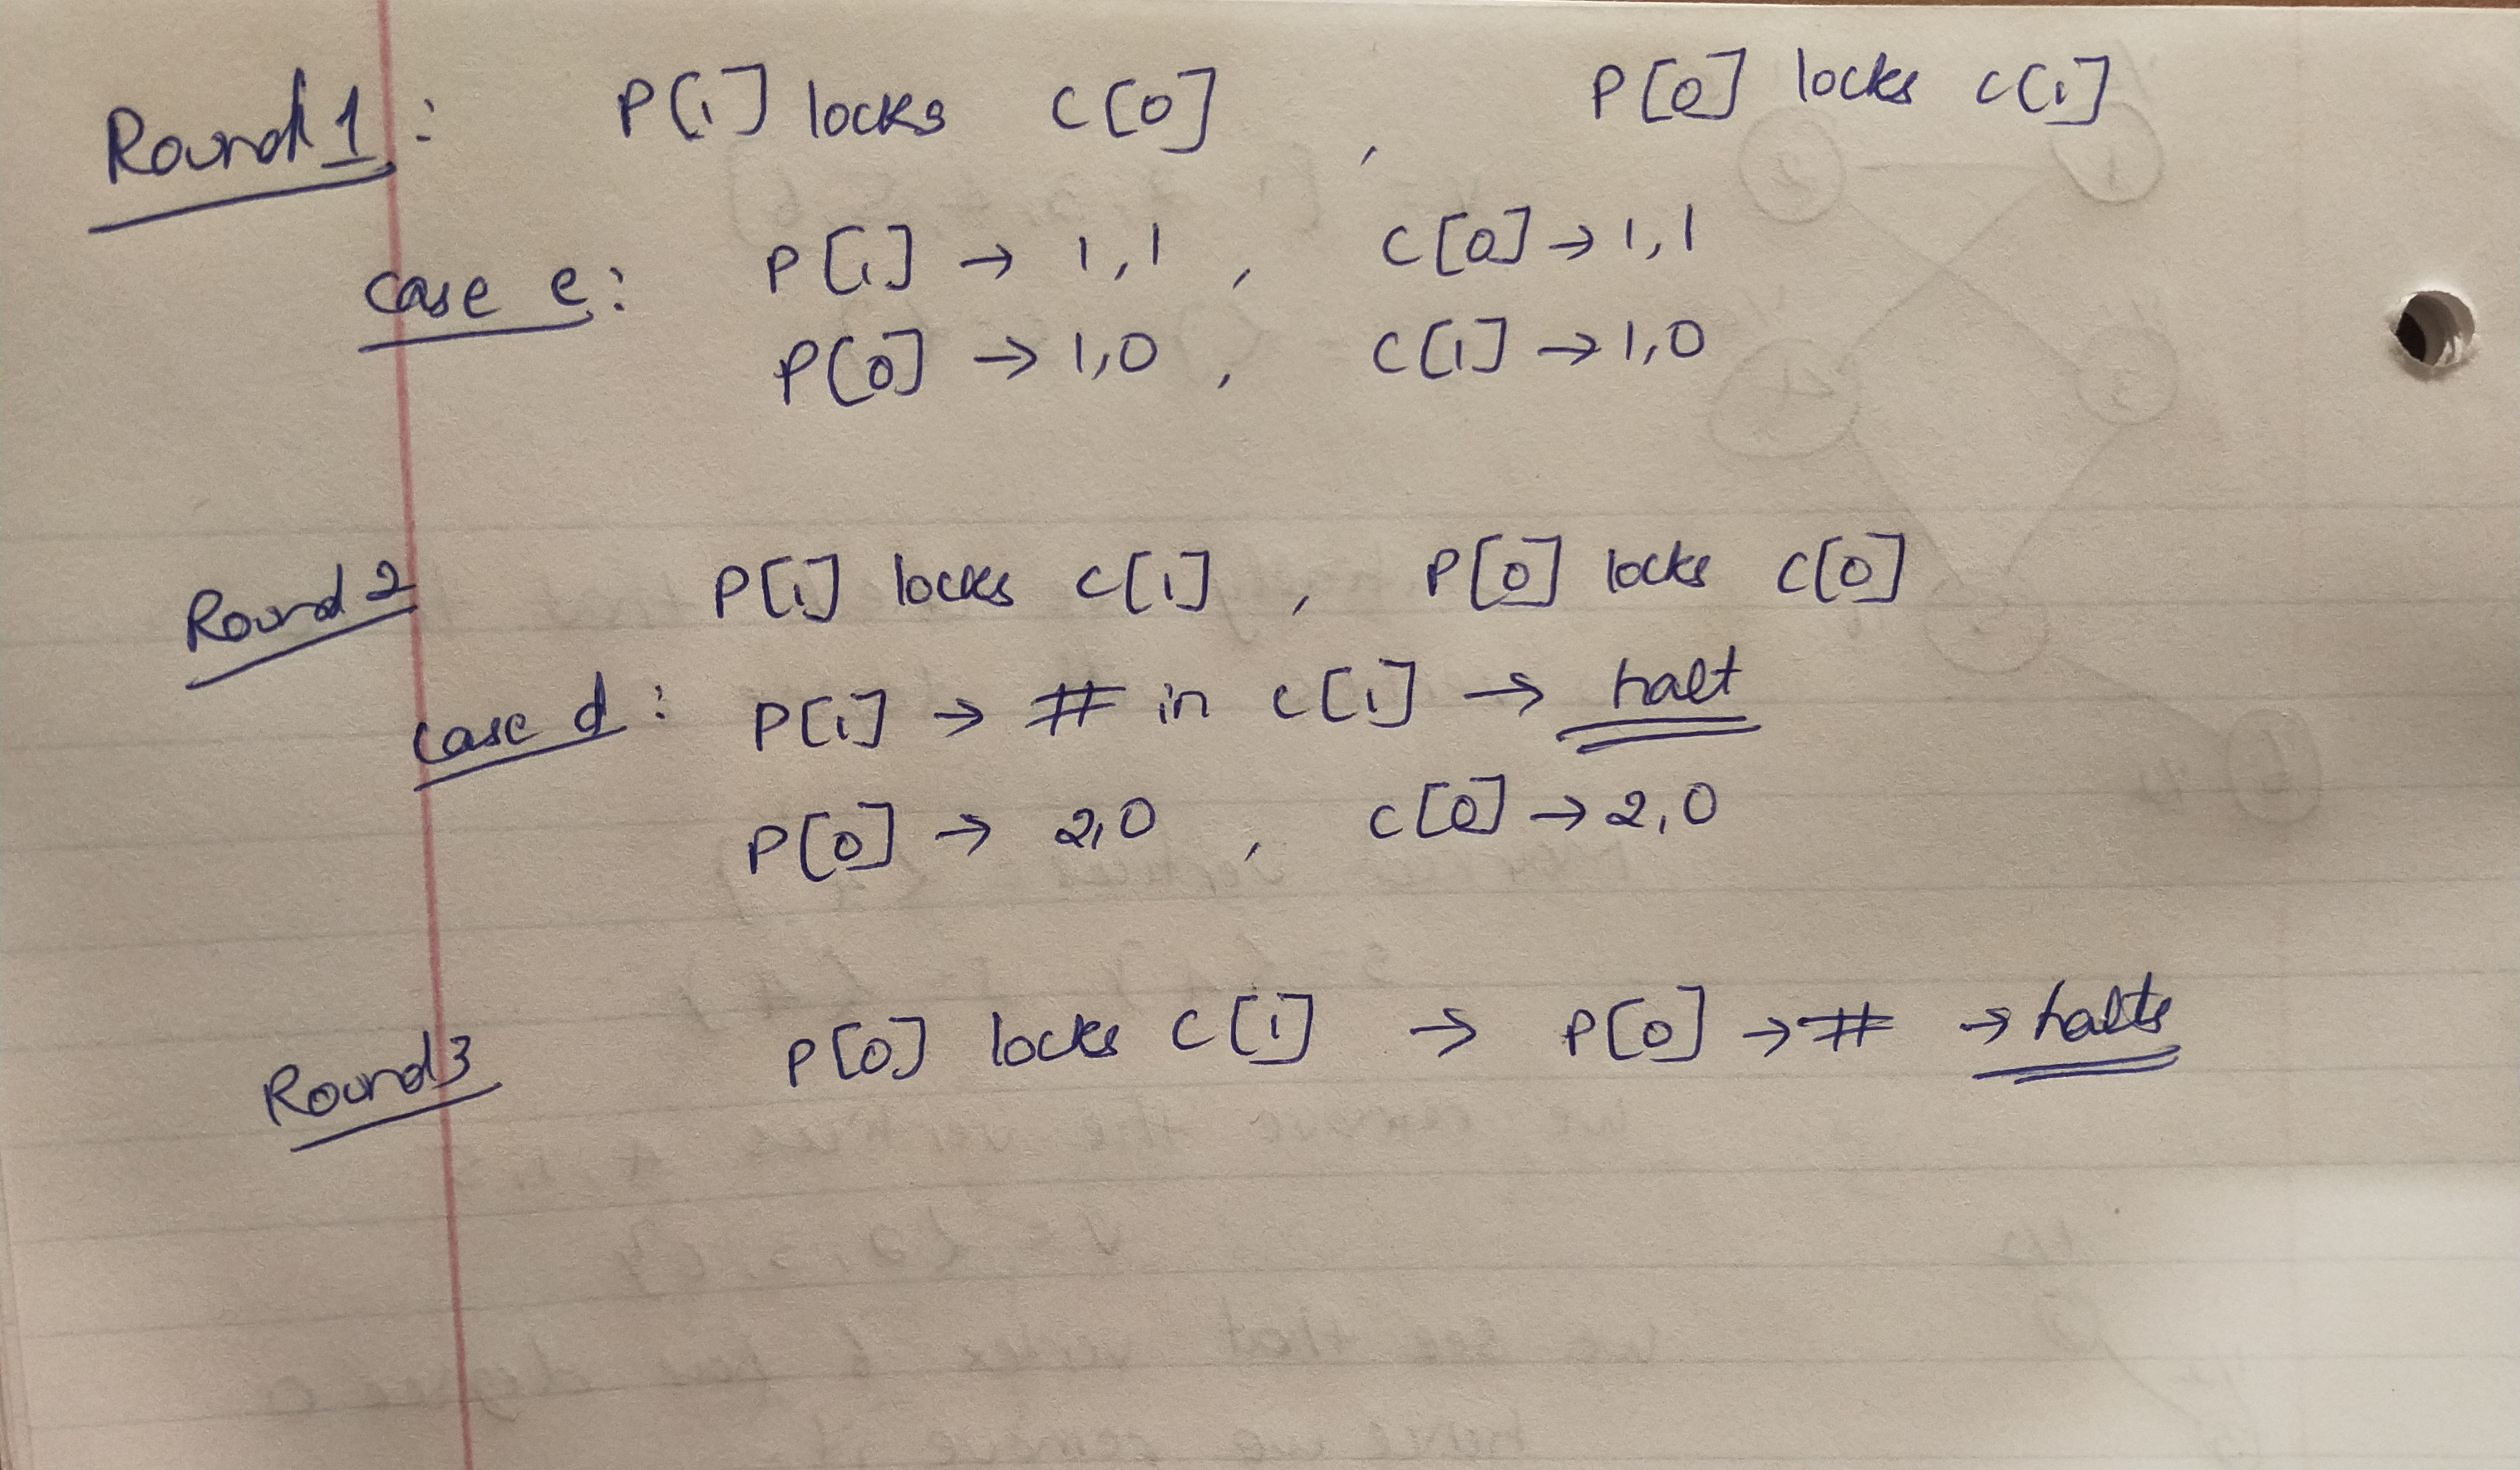 Round 1: P[1] locks C[0] , P[0] locks C[1]
case e: P[1] → 1,1 , C[0] → 1,1
P[0] → 1,0 , C[1] → 1,0
Round 2 P[1] locks C[1] , P[0] locks C[0]
case d: P[1] → # in C[1] → halt
P[0] → 2,0 , C[0] → 2,0
Round 3 P[0] locks C[1] → P[0] → # → halts